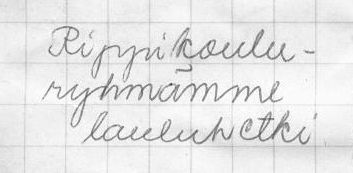 Rippikoulu-
ryhmämme
lauluhetki